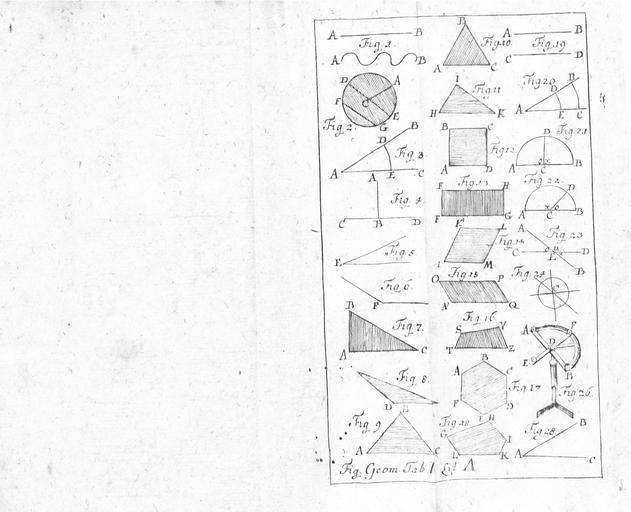 A B
Fig. 1.
A B
D A
F C
E
G
Fig. 2.
B
D
Fig. 3.
A E C
A
Fig. 4.
C B D
Fig. 5
E
Fig. 6.
F
B
Fig. 7.
A C
Fig. 8.
D
Fig. 9
E
A C
B
Fig. 10.
A C
I
Fig. 11
H K
B C
Fig. 12.
A D
Fig. 13.
E H
F G
L
Fig. 14.
I M
Fig. 15
O P
N Q
Fig. 16
S V
T Z
B
A C
Fig. 17
F D
Fig. 18
H
G I
L K
A B
Fig. 19
C D
Fig. 20
B
D
A E C
D
Fig. 21
A C B
Fig. 22.
D
A C B
A
Fig. 23
C D
E
B
Fig. 24
C
A F
D
E B
Fig. 26.
Fig. 28.
B
A C
Fig. Geom. Tab I Lit A